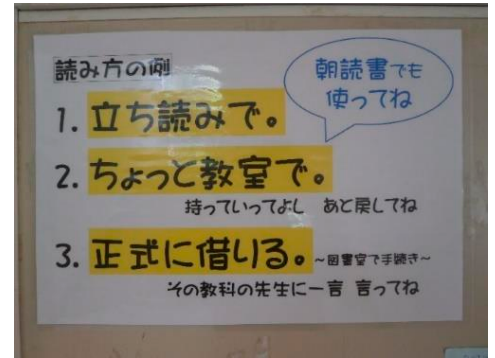 読み方の例
朝読書でも
使ってね
1. 立ち読みで。
2. ちょっと教室で。
持っていってよし あと戻してね
3. 正式に借りる。~図書室で手続き~
その教科の先生に一言 言ってね